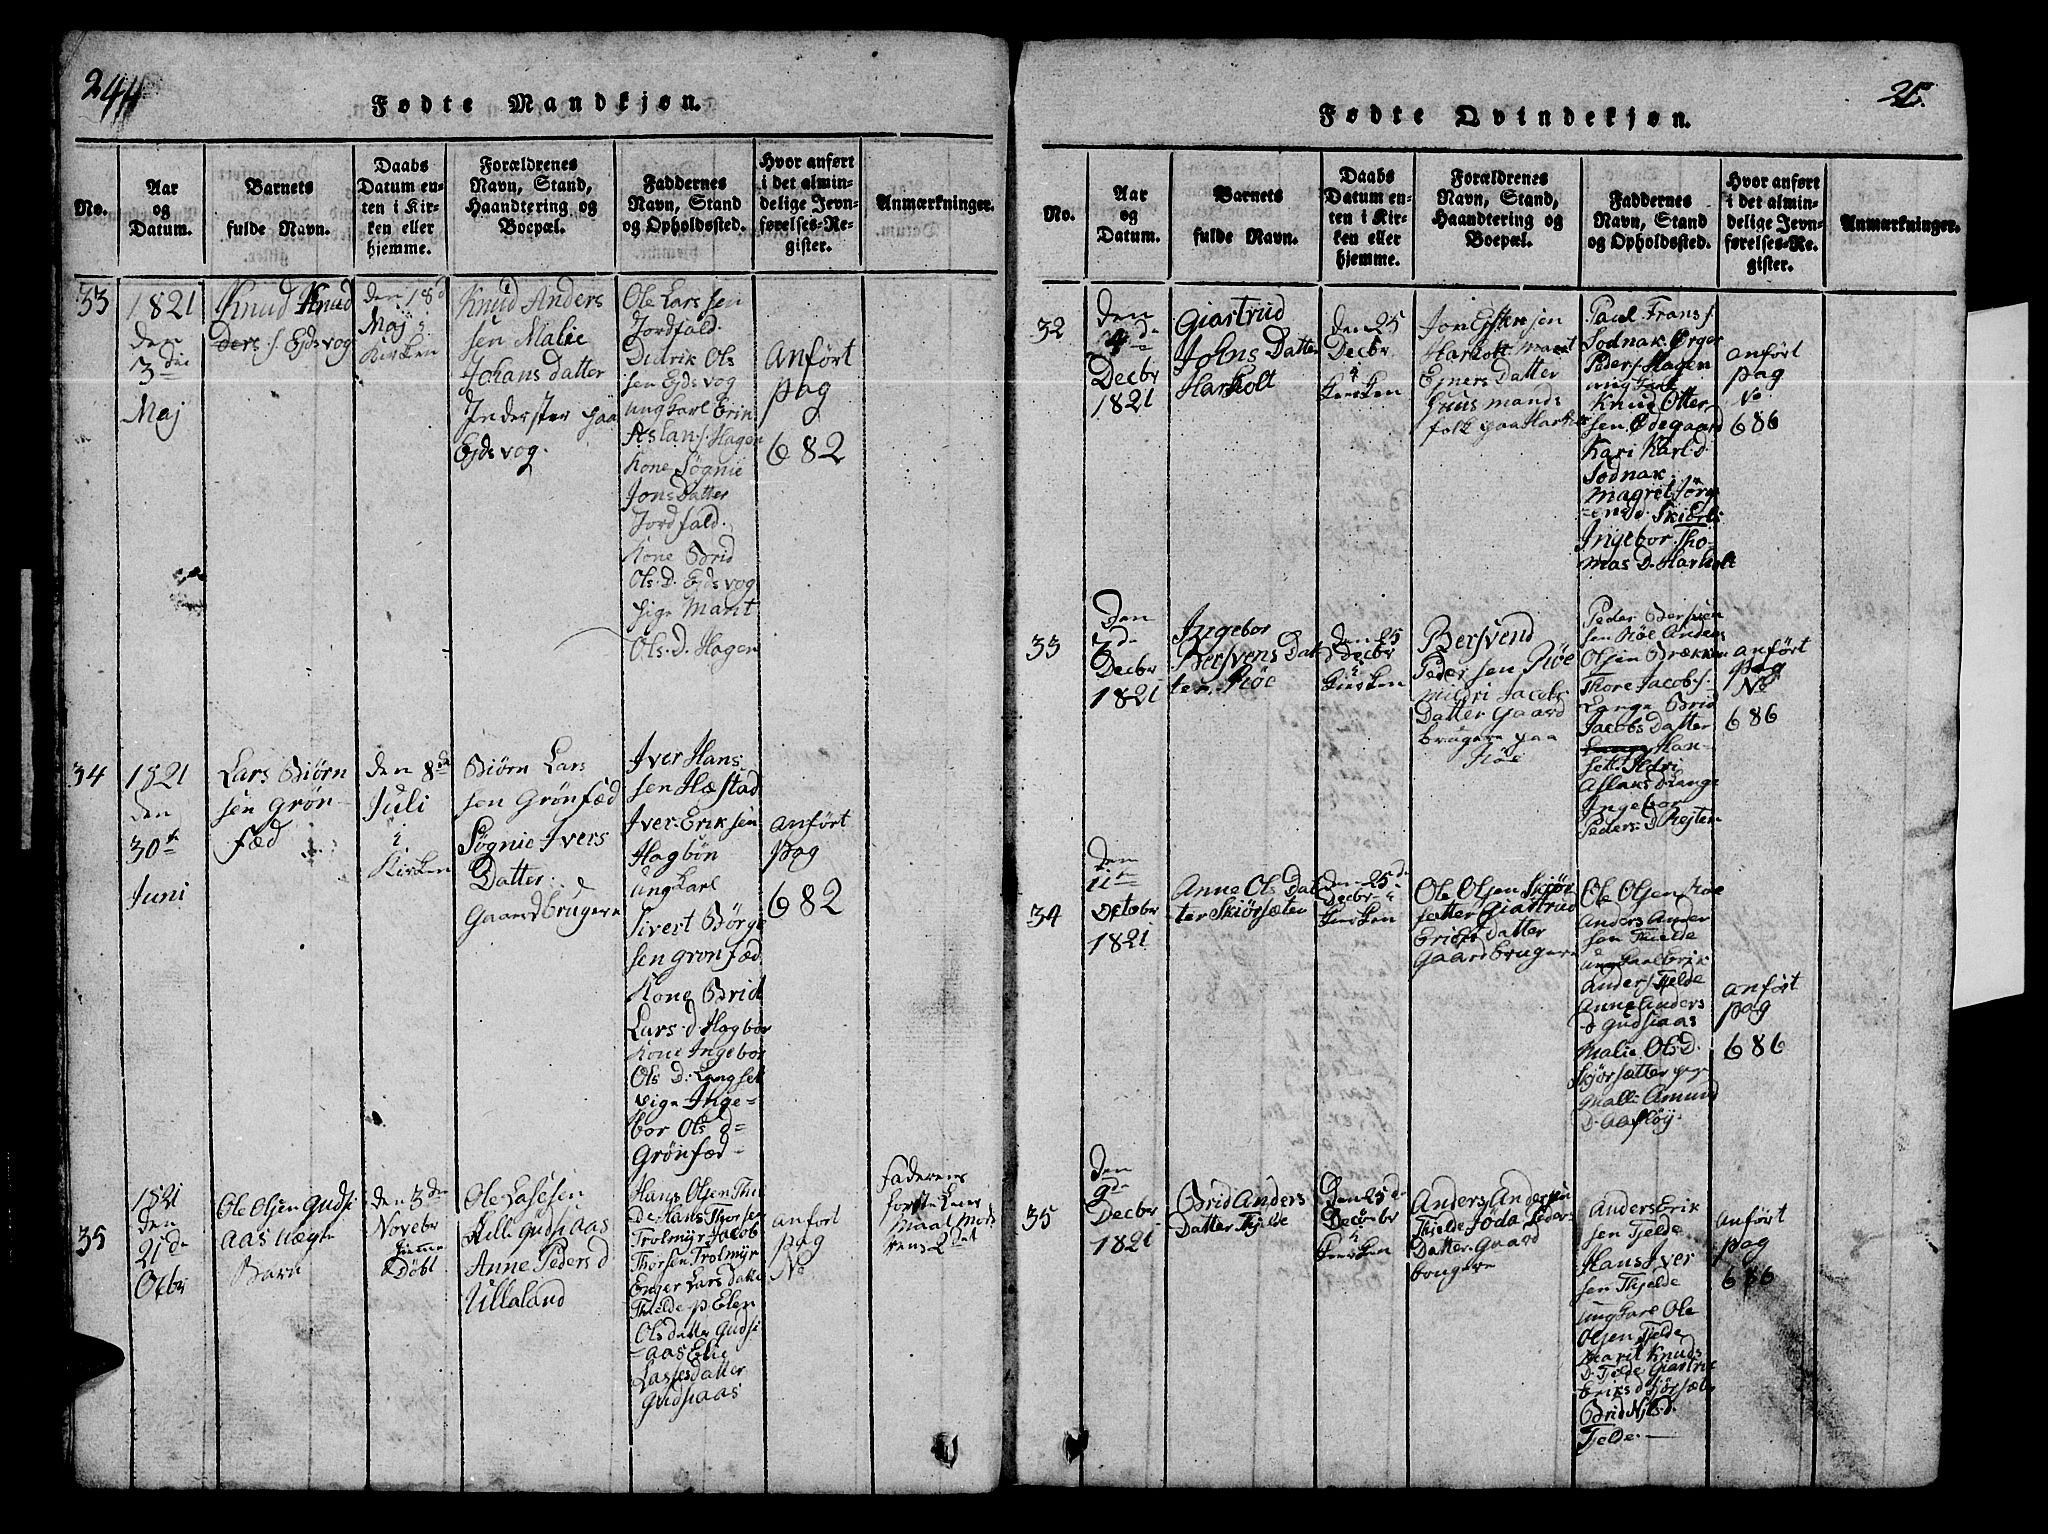 244
Fødte Mandkjøn.
No.
Aar
og
Datum.
Barnets
fulde Navn.
Daabs
Datum en-
ten i Kir-
ken eller
hjemme.
Forældrenes
Navn, Stand,
Haandtering og
Boepæl.
Faddernes
Navn, Stand
og Opholdssted.
Hvor anført
i det almin-
delige Jevn-
førelses-Re-
gister.
Anmærkninger.
33
1821
den
3die
Maj
Knud Knud
Ders s. Ejdsvog
den 18d
Maj i
Kirken
Knud Anders
sen Malie
Johans datter
Inderster paa
Ejdsvog.
Ole Lars sen
Jordfald.
Didrik Ols
sen Ejdsvog
ung karl Erin
Aslan s. Hagen
Kone Søgnie
Jons Datter
Jordfald.
Kone Brid
Ols. D. Ejdsvog
pige Marit
Ols. D. Hagen
anført
pag
682
34
1821
den
30te
Juni
Lars Biørn
sen Grøn
fæd
den 8de
Juli
i
Kirken
Biørn Lars
sen Grønfæd
Søgnie Ivers
Datter
Gaardbrugere
Iver Hans
sen Hæstad
Iver Erik sen
Hagbøn
ung karl
Sivert Børge
sen grønfæd
Kone Brid
Lars. d. Hagbør
Kone Ingebor
Ols D. Langset
pige Inge-
bor Ols d=
Grönfæd-
anført
pag
682
35
1821
den
21de
Octbr
Ole Olsen Gudsi
aas uægte
Barn
den 3de
Novebr
hieme
Døbt
Ole Lasesen
Lilli gudsiaas
Anne Peders d
Ullaland
Hans Olsen Thi
De Hans Thorsen
Trolmÿr Jacob
Thorsen Trolmÿr
Enger Lars datte
Thielde p Elen
Ols datte Gudsi
-aas Elie
Lassesdatter
Gudsiaas
anført
pag
No
Faderens
første Leier
maal Mode
rens 2det
25.
Fødte Qvindekjøn.
No.
Aar
og
Datum.
Barnets
fulde Navn.
Daabs
Datum en-
ten i Kir-
ken eller
hjemme.
Forældrenes
Navn, Stand,
Haandtering og
Boepæl.
Faddernes
Navn, Stand
og Opholdssted.
Hvor anført
i det almin-
delige Jevn-
førelses-Re-
gister.
Anmærkninger.
32
Den
4de
Decbr
1821
Giastrud
Johns Datter
Harholt
den 25
Decbr
i
Kirken
Jon Eskesen
Harholt Marit
Ejners Datter
Huusmands
folk paa Harholt
Paul Frans s.
Sodnak Ørger
Peders Hagen
ung karl
Knud Otter
sen Ødegaard
Kari Karl D.
Sodnak
Magret Jørg
ens d. Skierli
Ingebor Tho-
mas D. Harholt
anført
pag
No
686
33
Den
3de
Decbr
1821
Ingebor
Bersvens Dat
ter. Röe
den 25
Decbr
i
Kirken
Bersvend
Pedersen Röe
Mildri Jacobs
Datter Gaard
brugere paa
Röe
Peder Bersven
sen Röe Anders
Olsen Brækken
Thore Jacobs s.
Lange Brid
Jacobs Datter
Han-
set. Ildri
Aslaks d Lange
Ingebor
Peders d Rejten
anført
pag
No
686
34
den
11te
October
1821
Anne Ols Dat
ter Skiørsæter
den 25de
Decbr i
Kirken
Ole Olsen Skiør
sætter Giastrud
Erichs datter
Gaardbrugere
Ole Olsen Röe
Anders Ander
sen Thielde
ung karl Erik
Anders Tjelde
Anne Anders
D. Gudsiaas
Malie Ols D.
Skjørsætter pige
Malli Amund
D. Aasløÿ.
anført
pag
686
35
den
9de
Decbr
1821
Brid Anders
Datter Tjelde
den 25de
Decebr
i
Kirken
Anders Andersen
Thielde Jöda Peders
Datter Gaard
brugere
Anders Erik
sen Tjelde
Hans Iver
sen Thjelde
ung karl Ole
Olsen Tjelde
Marit Knuds
D. Tjelde Giastrue
Eriks d Skjørsæte
Brid Njls d.
Tjelde.
anført
pag
686